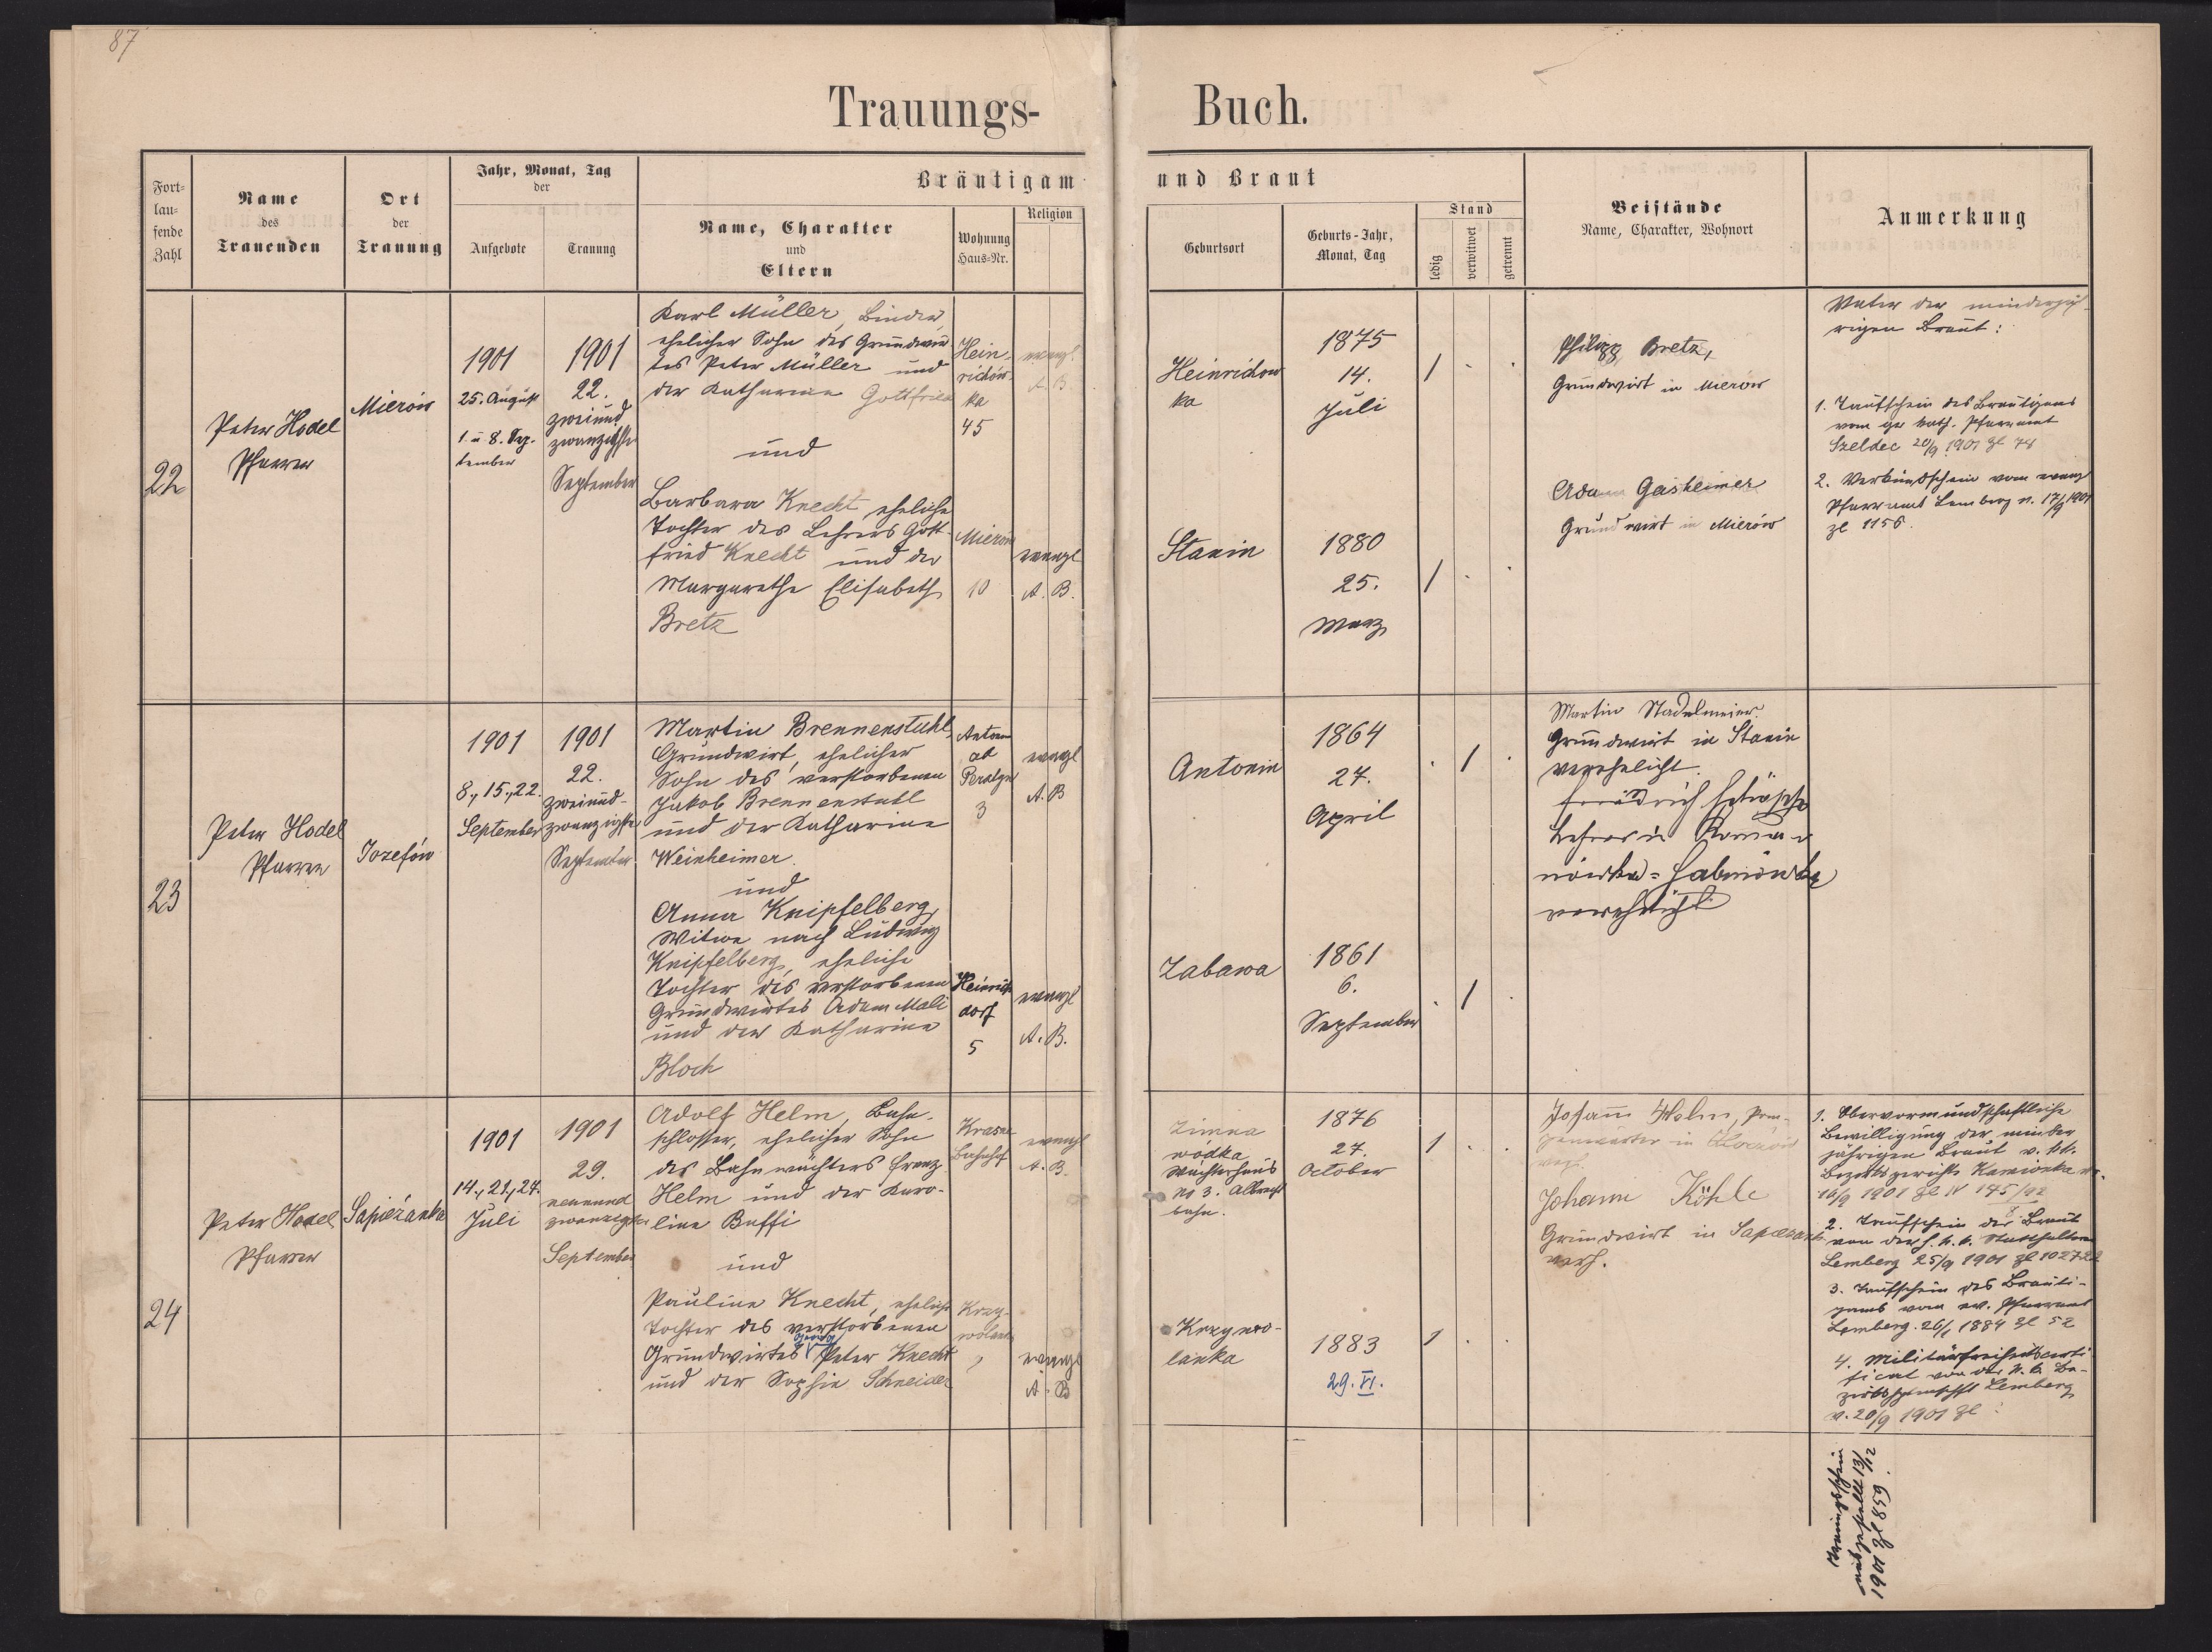 87
Trauungs-
Buch.
Fort-
lau-
fende
Zahl
Name
des
Trauenden
Ort
der
Trauung
Jahr, Monat, Tag
der
Aufgebote
Trauung
Bräutigam
Name, Charakter
und
Eltern
Wohnung
Haus-Nr.
Religion
und Braut
Geburtsort
Geburts-Jahr,
Monat, Tag
Stand
ledig
verwitwet
getrennt
Beistände
Name, Charakter, Wohnort
Anmerkung
22
Peter Hodel
Pfarrer
Mierów
1901
25. August
1. u 8. Sep-
tember
1901
22.
zweiund
zwanzigste
September
Karl Müller, Binder,
ehelicher Sohn des Grundwir
tes Peter Müller und
der Katharina Gottfried
Hein-
richów-
ka
45
evangl.
A. B.
und
Barbara Knecht eheliche
Tochter des Lehrers Gott-
fried Knecht und der
Margarethe Elisabeth
Bretz
Mierów
10
evangl
A. B.
Heinrichow
ka
1875
14.
Juli
1
Stanin
1880
25.
März
1
Philipp Bretz,
Grundwirt in Mierów
Adam Geisheimer
Grundwirt in Mierów
Vater der minderjäh-
rigen Braut:
1. Taufschein des Bräutigams
vom gr kath. Pfarramt
Szeldec 20/9 1901 Zl 74
2. Verkündschein vom evang
Pfarramt Lemberg v. 17/9 1901
Zl 1156.
23
Peter Hodel
Pfarrer
Jozefów
1901
8., 15., 22.
September
1901
22.
zweiund-
zwanzigste
September
Martin Brennenstuhl,
Grundwirt, ehelicher
Sohn des verstorbenen
Jakob Brennenstuhl
und der Katharina
Weinheimer.
Antonin
ad
3
evangl
A. B
und
Anna Knipfelberg,
Witwe nach Ludwig
Knipfelberg, eheliche
Tochter des verstorbenen
Grundwirtes Adam Mali
und der Katharina
Bloch
Heinrichs
dorf
5
evangl
A. B.
Antonin
1864
27.
April
1
Zabawa
1861
6.
September
1
Martin Stadelmeier
Grundwirt in Stanin
verehelicht.
Lehrer in Roma-
nówka-
verehelicht
24
Peter Hodel
Pfarrer
Sapieżanka
1901
14., 21., 24.
Juli
1901
29.
neunund
zwanzigste
September
Adolf Helm, Bahn-
schlosser, ehelicher Sohn
des Bahnwächters Franz
Helm und der Karo-
line Buffi
Krasne
Bahnhof
evangl
A. B.
und
Pauline Knecht, eheliche
Tochter des verstorbenen
Georg
Grundwirtes Peter Knecht
und der Sophie Schneider
Krzy-
wolanka
evangl
A. B
Zimna
wódka
Wächterhaus
No 3. Albrecht
bahn.
1876
27.
October
1
Krzywo-
lanka
1883
29. VI.
1
Johann Helm,
Johann Köhle
Grundwirt in Sapieżanka
verh.
1. Obervormundschaftliche
Bewilligung der minder
jährigen Braut v. kk.
Bezirksgerichte Kamionka v.
16/9 1901 Zl IV 145/92
8
2. Taufschein der Braut
von der h. k. k. Statthalterei
Lemberg 25/9 1901 Zl 102722
3. Taufschein des Bräuti-
gams vom ev. Pfarramt
Lemberg. 26/1 1884 Zl 52
4. Militärfreiheitscerti-
ficat von der k. k. Be-
zirkshptmschft Lemberg
v. 20/9 1901 Zl
Trauungsschein
ausgestellt 13/12
1901 Zl 859.